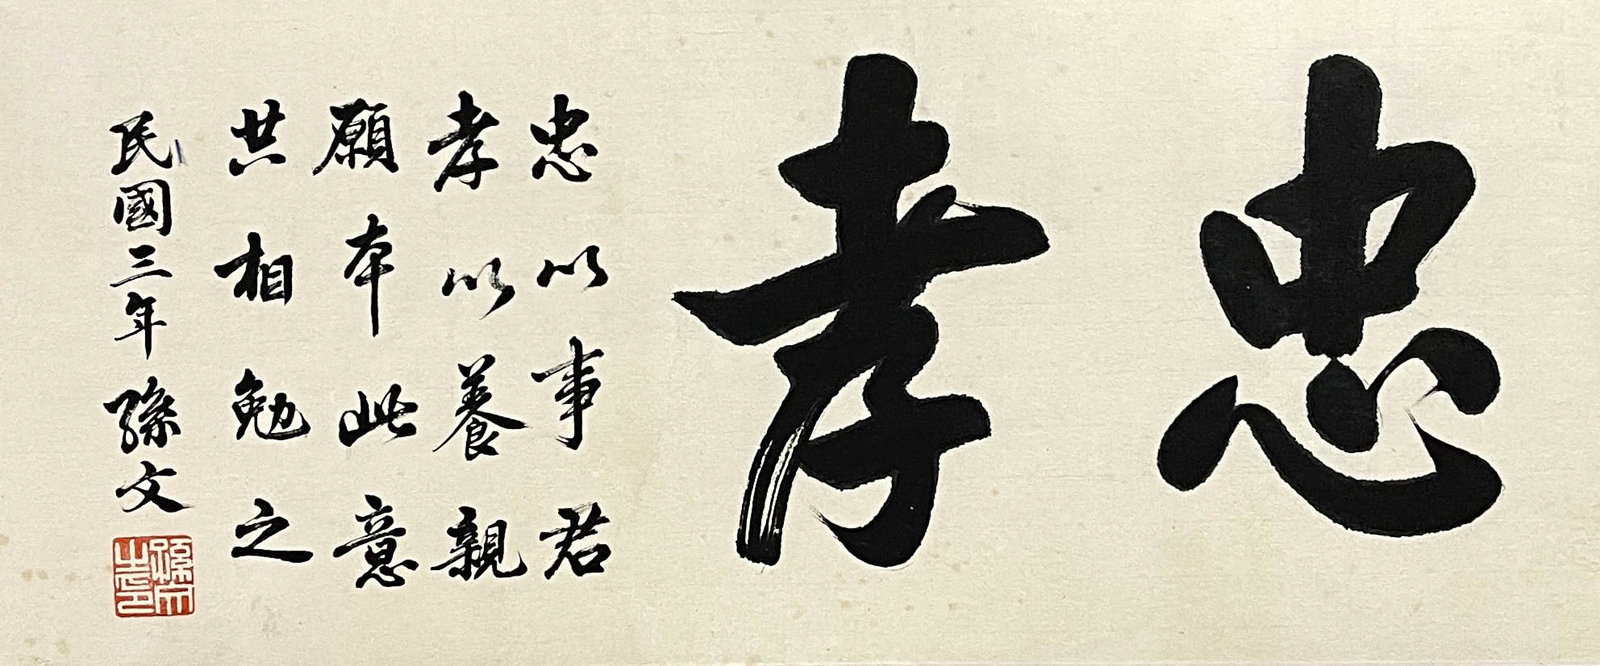 忠孝
忠以事君
孝以養親
願本此意
共相勉之
民國三年 孫文
孫文之印